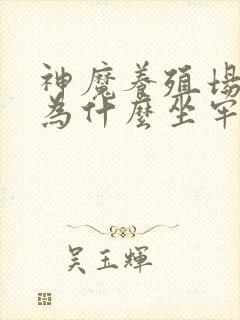 神魔養殖場
為什麼坐牢
吴玉輝